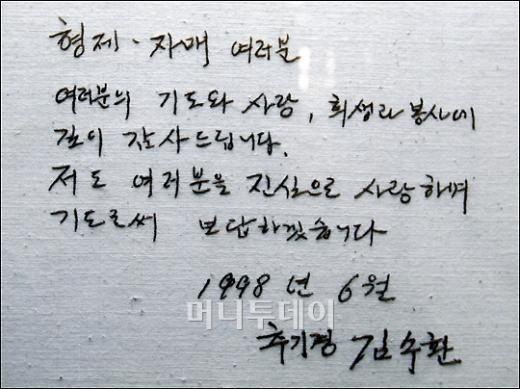 형제·자매 여러분
여러분의 기도와 사랑, 희생과 봉사에
깊이 감사드립니다.
저도 여러분을 진심으로 사랑하며
기도로써 보답하겠습니다
1998년 6월
머니투데이
추기경 김수환